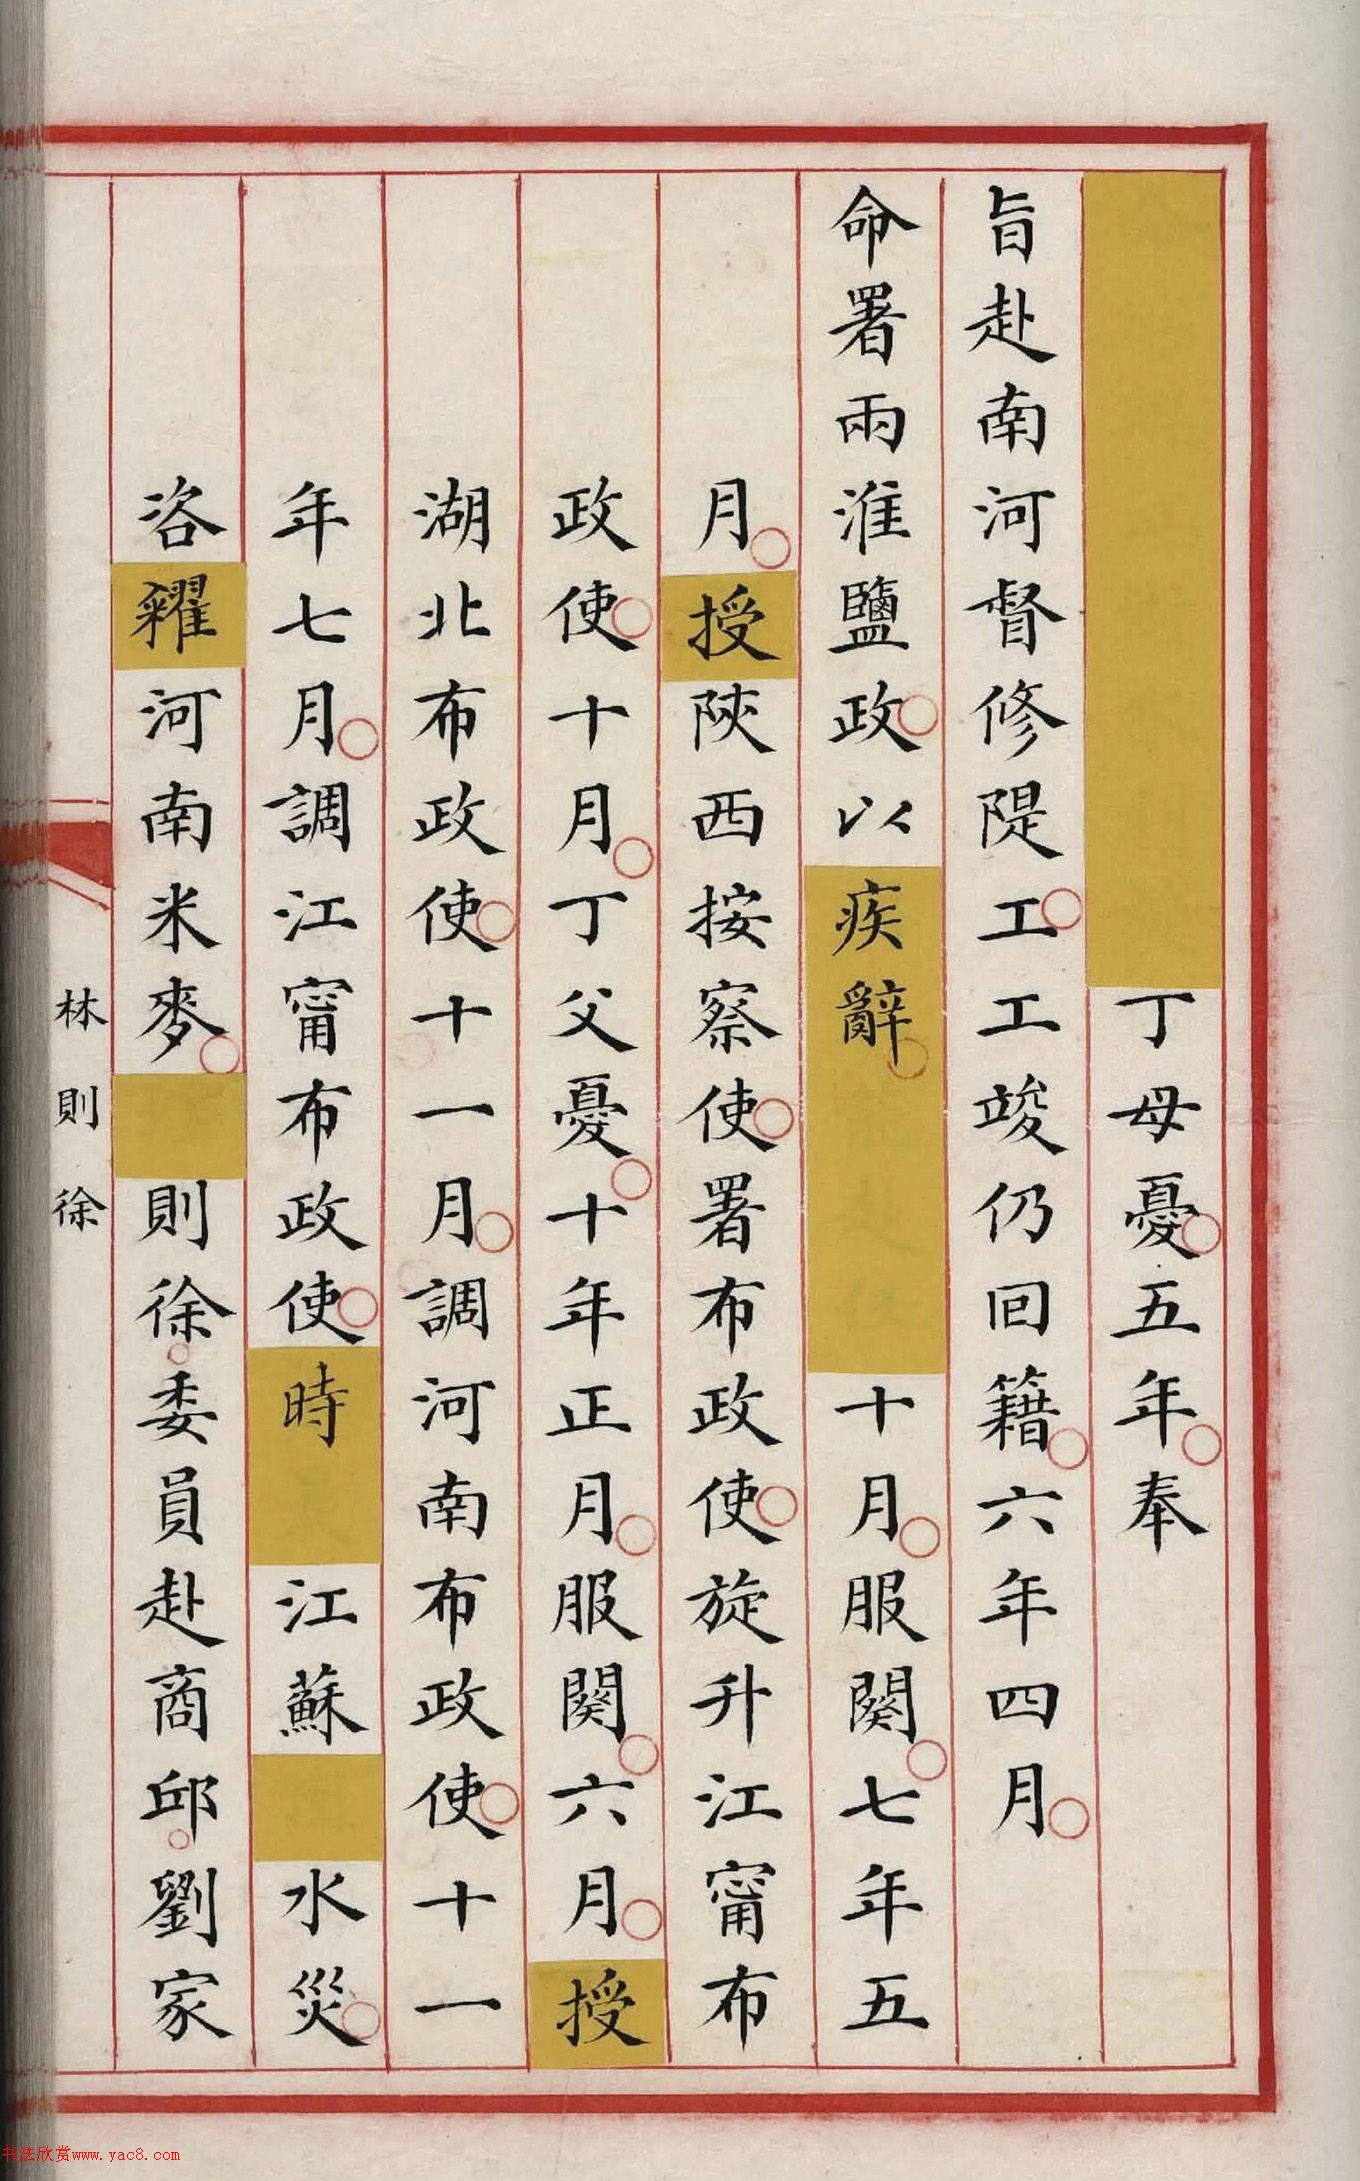 丁母憂五年奉
旨赴南河督修隄工工竣仍回籍六年四月
命署兩淮鹽政以疾辭十月服闋七年五
月授陝西按察使署布政使旋升江甯布
政使十月丁父憂十年正月服闋六月授
湖北布政使十一月調河南布政使十一
年七月調江甯布政使時江蘇水災
咨糴河南米麥則徐委員赴商邱劉家
林則徐
书法欣赏www.yac8.com